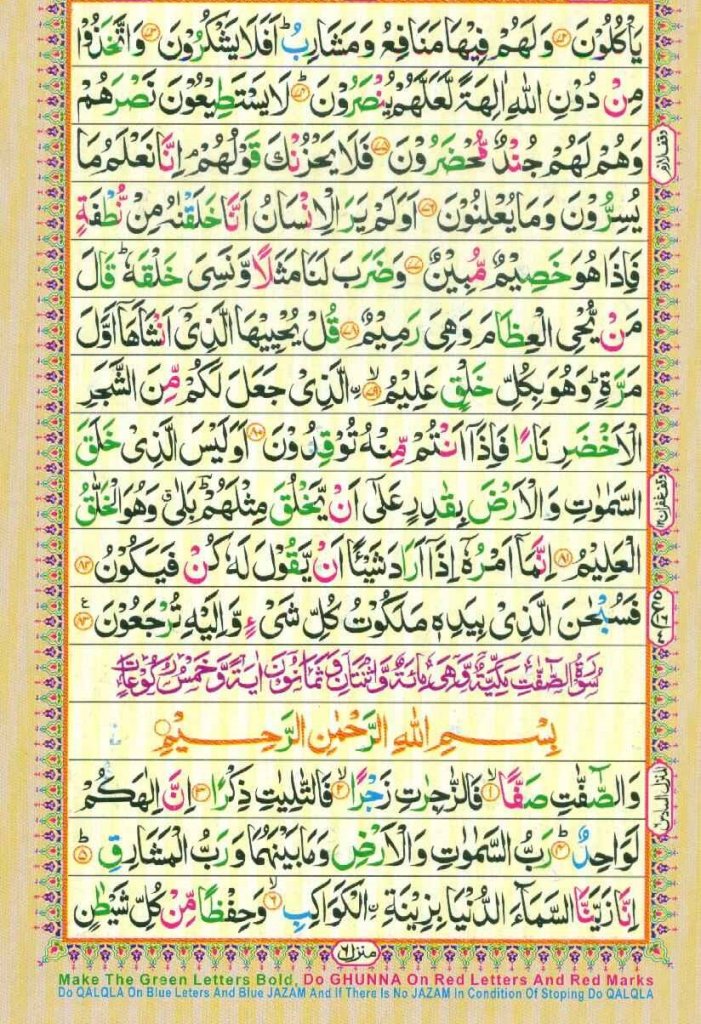 يَاْكُلُوْنَ ﴿۷۲﴾ وَلَهُمْ فِيْهَا مَنَافِعُ وَمَشَارِبُ ؕ اَفَلَا يَشْكُرُوْنَ ﴿۷۳﴾ وَاتَّخَذُوْا
مِنْ دُوْنِ اللّٰهِ اٰلِهَةً لَّعَلَّهُمْ يُنْصَرُوْنَ ؕ﴿۷۴﴾ لَا يَسْتَطِيْعُوْنَ نَصْرَهُمْ
وَهُمْ لَهُمْ جُنْدٌ مُّحْضَرُوْنَ ﴿۷۵﴾ فَلَا يَحْزُنْكَ قَوْلُهُمْ ۘ اِنَّا نَعْلَمُ مَا
يُسِرُّوْنَ وَمَا يُعْلِنُوْنَ ﴿۷۶﴾ اَوَلَمْ يَرَ الْاِنْسَانُ اَنَّا خَلَقْنٰهُ مِنْ نُّطْفَةٍ
فَاِذَا هُوَ خَصِيْمٌ مُّبِيْنٌ ﴿۷۷﴾ وَضَرَبَ لَنَا مَثَلًا وَّنَسِىَ خَلْقَهٗ ؕ قَالَ
مَنْ يُّحْىِ الْعِظَامَ وَهِىَ رَمِيْمٌ ﴿۷۸﴾ قُلْ يُحْيِيْهَا الَّذِىْۤ اَنْشَاَهَاۤ اَوَّلَ
مَرَّةٍ ؕ وَهُوَ بِكُلِّ خَلْقٍ عَلِيْمُ ۙ﴿۷۹﴾ ۨالَّذِىْ جَعَلَ لَكُمْ مِّنَ الشَّجَرِ
الْاَخْضَرِ نَارًا فَاِذَاۤ اَنْتُمْ مِّنْهُ تُوْقِدُوْنَ ﴿۸۰﴾ اَوَلَيْسَ الَّذِىْ خَلَقَ
السَّمٰوٰتِ وَالْاَرْضَ بِقٰدِرٍ عَلٰٓى اَنْ يَّخْلُقَ مِثْلَهُمْ ؕ بَلٰى ۗ وَهُوَ الْخَلّٰقُ
الْعَلِيْمُ ﴿۸۱﴾ اِنَّمَاۤ اَمْرُهٗۤ اِذَاۤ اَرَادَ شَيْـًٔا اَنْ يَّقُوْلَ لَهٗ كُنْ فَيَكُوْنُ ﴿۸۲﴾
فَسُبْحٰنَ الَّذِىْ بِيَدِهٖ مَلَكُوْتُ كُلِّ شَىْءٍ وَّاِلَيْهِ تُرْجَعُوْنَ ﴿۸۳﴾ ع
سُوْرَةُ الصّٰفّٰتِ مَكِّيَّةٌ وَّهِىَ مِائَةٌ وَّاثْنَتَانِ وَثَمَانُوْنَ اٰيَةً وَّخَمْسُ رُكُوْعَاتٍ
بِسْمِ اللّٰهِ الرَّحْمٰنِ الرَّحِيْمِ
وَالصّٰٓفّٰتِ صَفًّا ۙ﴿۱﴾ فَالزّٰجِرٰتِ زَجْرًا ۙ﴿۲﴾ فَالتّٰلِيٰتِ ذِكْرًا ۙ﴿۳﴾ اِنَّ اِلٰهَكُمْ
لَوَاحِدٌ ؕ﴿۴﴾ رَبُّ السَّمٰوٰتِ وَالْاَرْضِ وَمَا بَيْنَهُمَا وَرَبُّ الْمَشَارِقِ ؕ﴿۵﴾
اِنَّا زَيَّنَّا السَّمَآءَ الدُّنْيَا بِزِيْنَةِ ۨالْكَوَاكِبِ ۙ﴿۶﴾ وَحِفْظًا مِّنْ كُلِّ شَيْطٰنٍ
وقف لازم
وقف غفران
المنزل السادس
منزل ٦
Make The Green Letters Bold, Do GHUNNA On Red Letters And Red Marks
Do QALQLA On Blue Leters And Blue JAZAM And If There Is No JAZAM In Condition Of Stoping Do QALQLA